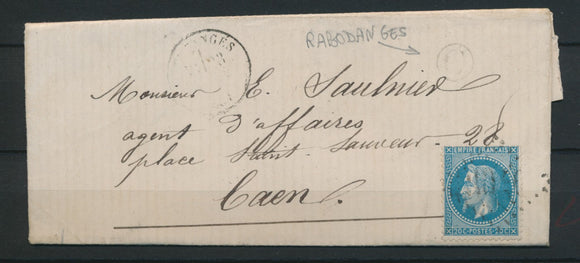 RABODANGES
Monsieur E. Saulnier
agent d'affaires
place Saint Sauveur - 28
Caen.
EMPIRE FRANÇAIS
20C POSTES 20C